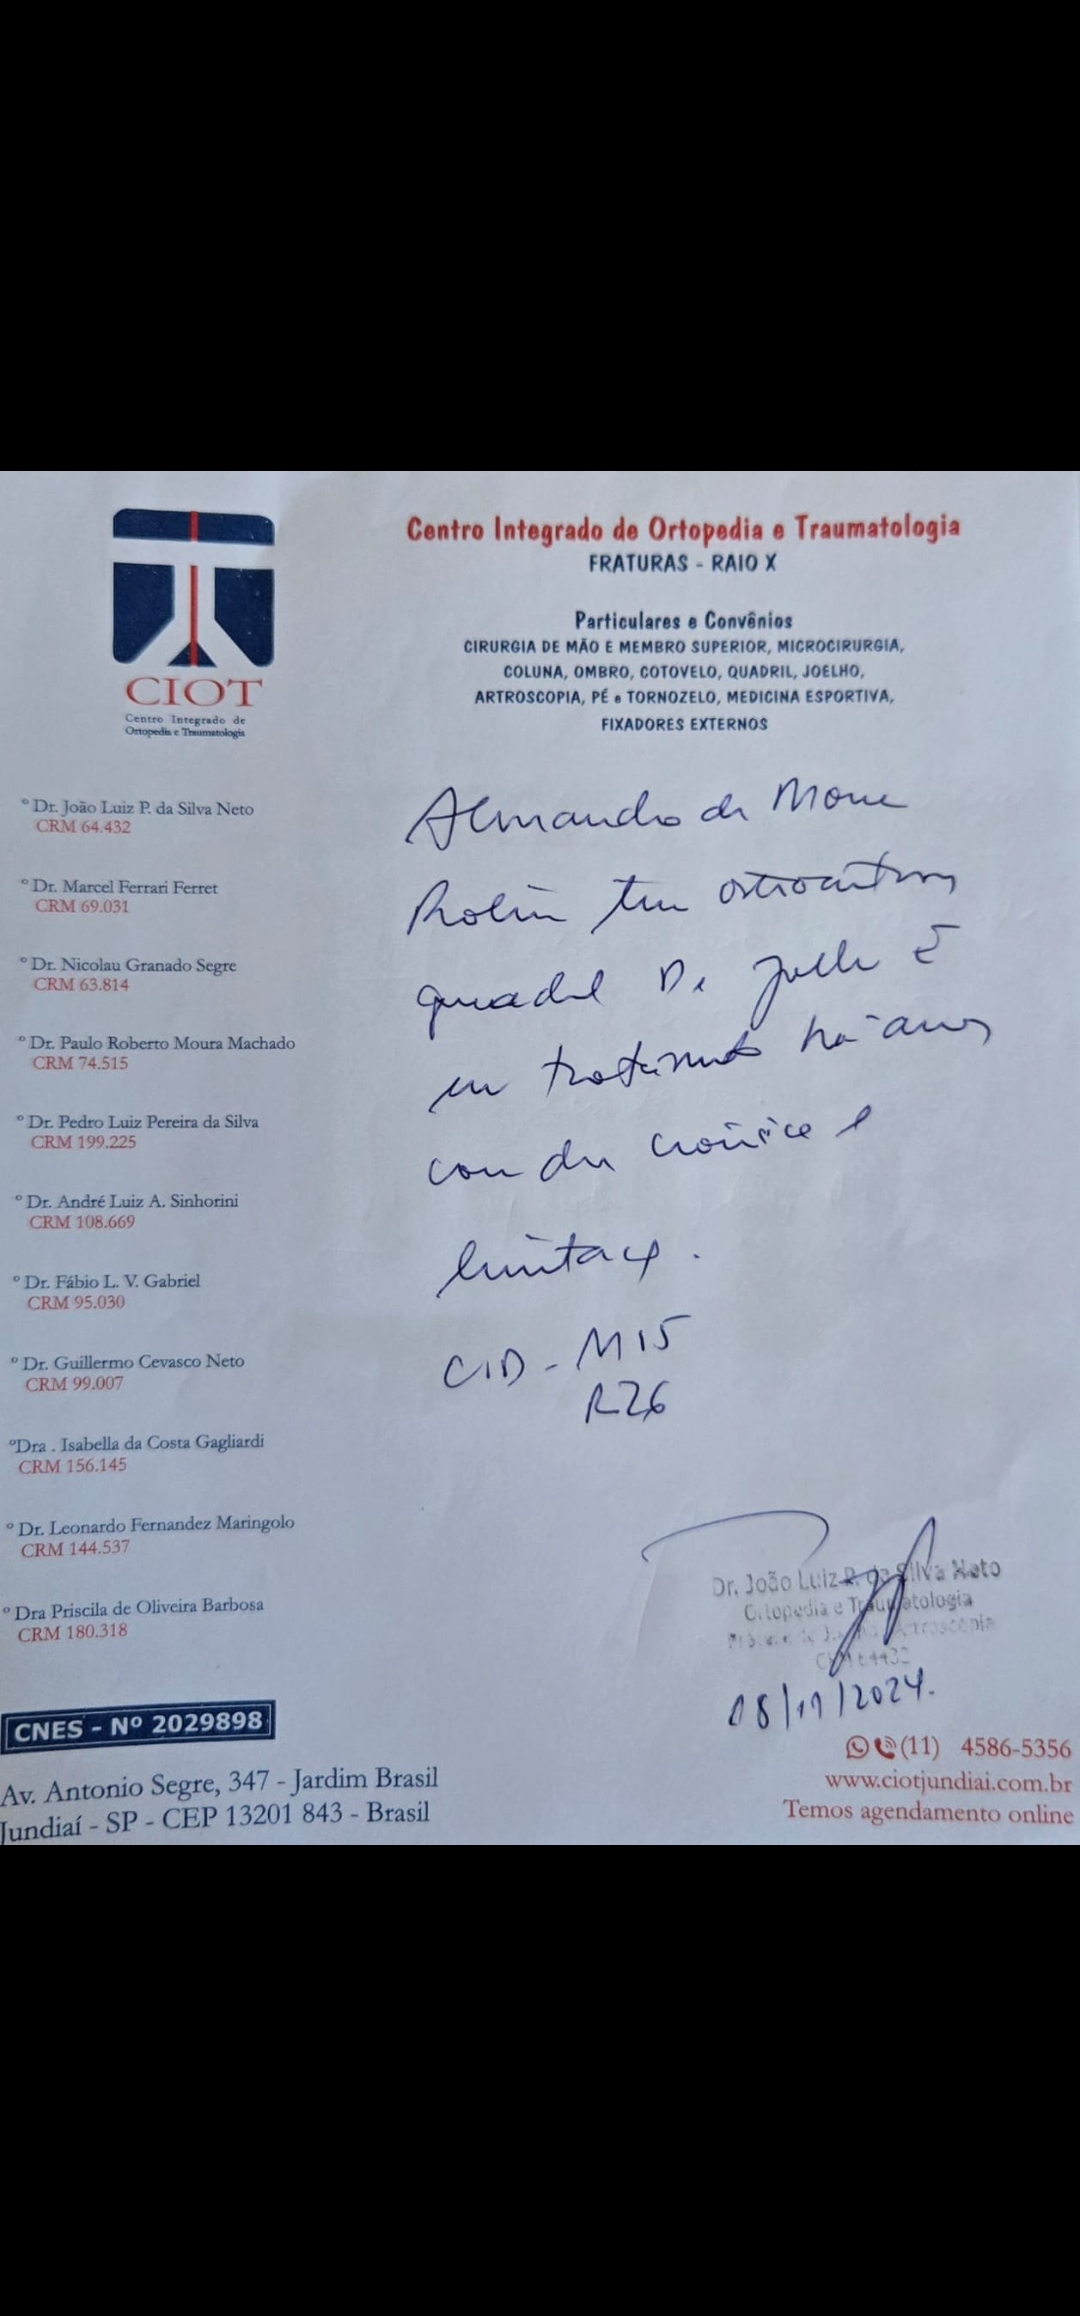 Centro Integrado de Ortopedia e Traumatologia
FRATURAS - RAIO X
Particulares e Convênios
CIRURGIA DE MÃO E MEMBRO SUPERIOR, MICROCIRURGIA,
COLUNA, OMBRO, COTOVELO, QUADRIL, JOELHO,
ARTROSCOPIA, PÉ e TORNOZELO, MEDICINA ESPORTIVA,
FIXADORES EXTERNOS
CIOT
Centro Integrado de
Ortopedia e Traumatologia
º Dr. João Luiz P. da Silva Neto
CRM 64.432
º Dr. Marcel Ferrari Ferret
CRM 69.031
º Dr. Nicolau Granado Segre
CRM 63.814
º Dr. Paulo Roberto Moura Machado
CRM 74.515
º Dr. Pedro Luiz Pereira da Silva
CRM 199.225
º Dr. André Luiz A. Sinhorini
CRM 108.669
º Dr. Fábio L. V. Gabriel
CRM 95.030
º Dr. Guillermo Cevasco Neto
CRM 99.007
ºDra . Isabella da Costa Gagliardi
CRM 156.145
º Dr. Leonardo Fernandez Maringolo
CRM 144.537
º Dra Priscila de Oliveira Barbosa
CRM 180.318
CNES - Nº 2029898
Av. Antonio Segre, 347 - Jardim Brasil
Jundiaí - SP - CEP 13201 843 - Brasil
de
tem
quadril
em tratamento há anos
com dor crônica e
CID - M15
R26
Dr. João Luiz P. da Silva Neto
Ortopedia e Traumatologia
Artroscopia
08/11/2024.
(11) 4586-5356
www.ciotjundiai.com.br
Temos agendamento online